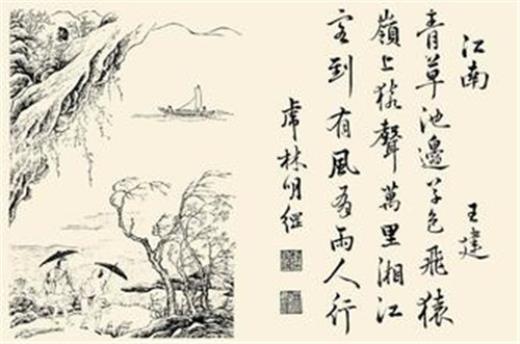 江南
王建
青草池邊草色飛猿
嶺上猿聲萬里湘江
客到有風有雨人行
虎林明継